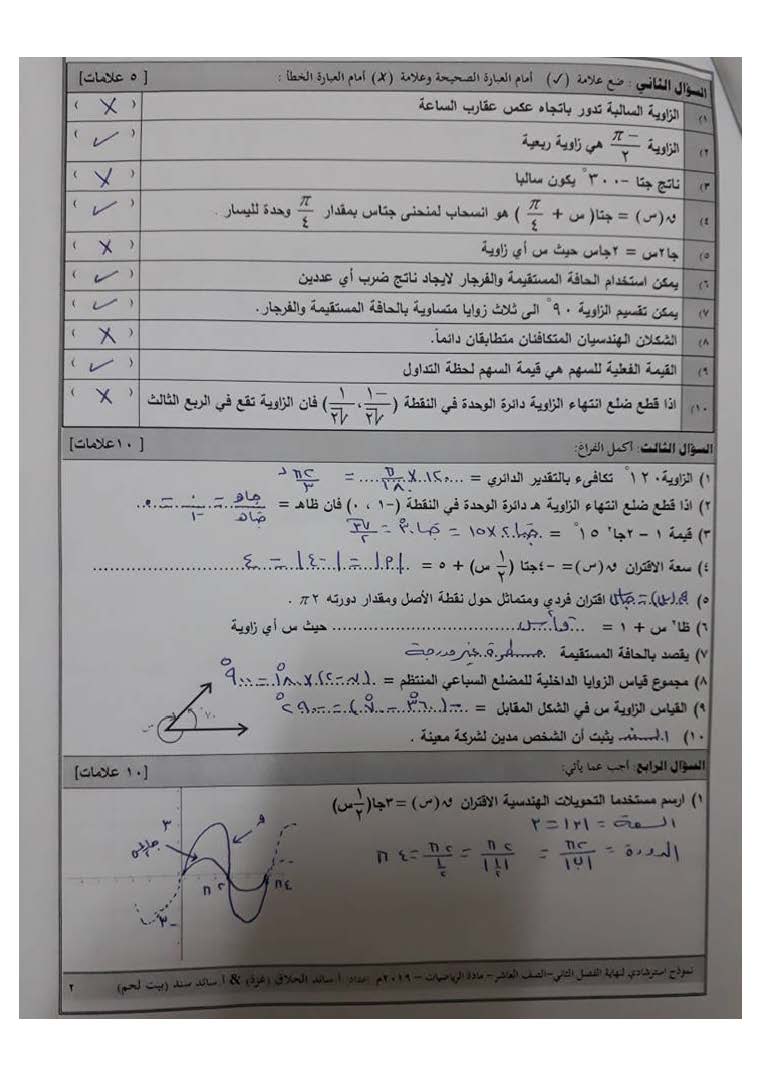 السؤال الثاني : ضع علامة (✓) أمام العبارة الصحيحة وعلامة (✗) أمام العبارة الخطأ : [ ٥ علامات]
١) الزاوية السالبة تدور باتجاه عكس عقارب الساعة ( ✗ )
٢) الزاوية -π/٢ هي زاوية ربعية ( ✓ )
٣) ناتج جتا -٣٠٠° يكون سالبا ( ✗ )
٤) ق(س) = جتا( س + π/٤ ) هو انسحاب لمنحنى جتاس بمقدار π/٤ وحدة لليسار . ( ✓ )
٥) جا٢س = ٢جاس حيث س أي زاوية ( ✗ )
٦) يمكن استخدام الحافة المستقيمة والفرجار لايجاد ناتج ضرب أي عددين ( ✓ )
٧) يمكن تقسيم الزاوية ٩٠° الى ثلاث زوايا متساوية بالحافة المستقيمة والفرجار. ( ✓ )
٨) الشكلان الهندسيان المتكافئان متطابقان دائماً. ( ✗ )
٩) القيمة الفعلية للسهم هي قيمة السهم لحظة التداول ( ✓ )
١٠) اذا قطع ضلع انتهاء الزاوية دائرة الوحدة في النقطة (-١/√٢ ، ١/√٢) فان الزاوية تقع في الربع الثالث ( ✗ )
السؤال الثالث: أكمل الفراغ: [ ١٠علامات]
١) الزاوية ١٢٠° تكافىء بالتقدير الدائري = ١٢٠ × π/١٨٠ = ٢π/٣
٢) اذا قطع ضلع انتهاء الزاوية هـ دائرة الوحدة في النقطة (-١ ، ٠) فان ظاهـ = جاهـ/جتاهـ = ٠/-١ = ٠
٣) قيمة ١ - ٢جا² ١٥° = جتا ٢ × ١٥ = جتا ٣٠° = √٣/٢
٤) سعة الاقتران ق(س)= -٤جتا (١/٢ س) + ٥ = |أ| = |-٤| = ٤
٥) ق(س) = جاس اقتران فردي ومتماثل حول نقطة الأصل ومقدار دورته ٢π .
٦) ظا² س + ١ = قا²س حيث س أي زاوية
٧) يقصد بالحافة المستقيمة مسطرة غير مدرجة
٨) مجموع قياس الزوايا الداخلية للمضلع السباعي المنتظم = (٧-٢) × ١٨٠° = ٩٠٠°
٩) القياس الزاوية س في الشكل المقابل = -(٣٦٠° - ٧٠°) = -٢٩٠°
س ٧٠°
١٠) السند يثبت أن الشخص مدين لشركة معينة .
السؤال الرابع: أجب عما يأتي: [ ١٠ علامات]
١) ارسم مستخدما التحويلات الهندسية الاقتران ق(س) = ٣جا(١/٢س)
السعة = |٣| = ٣
الدورة = ٢π/|ب| = ٢π/|١/٢| = ٢π/١/٢ = ٤π
٣
ق
٢π
٤π
-٣
نموذج استرشادي لنهاية الفصل الثاني-الصف العاشر- مادة الرياضيات - ٢٠١٩م إعداد: أ.سائد الحلاق (غزة) & أ.سائد سند (بيت لحم) ٢